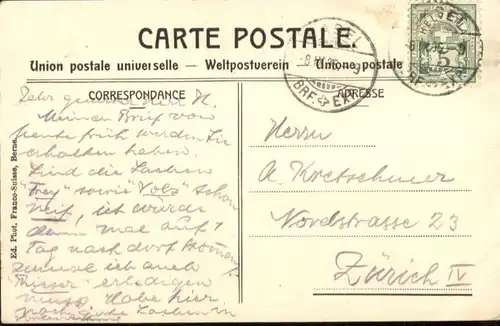 CARTE POSTALE.
Union postale universelle — Weltpostverein — Unione postale
CORRESPONDANCE
ADRESSE
BASEL
BRF. EXP.
HELVETIA
5
Ed. Phot. Franco-Suisse, Berne.
Sehr geehrter Herr K.
Meinen Brief von
heute früh werden Sie
erhalten haben.
Sind die Sachen
"Frey" sowie "Volz" schon
reif, ich würde
dann mal auf 1
Tag nach dort kommen,
zumal ich auch
"Rieser" erledigen
muss. Habe hier
noch Sachen
Herrn
A. Kretschmer
Nordstrasse 23
Zürich IV